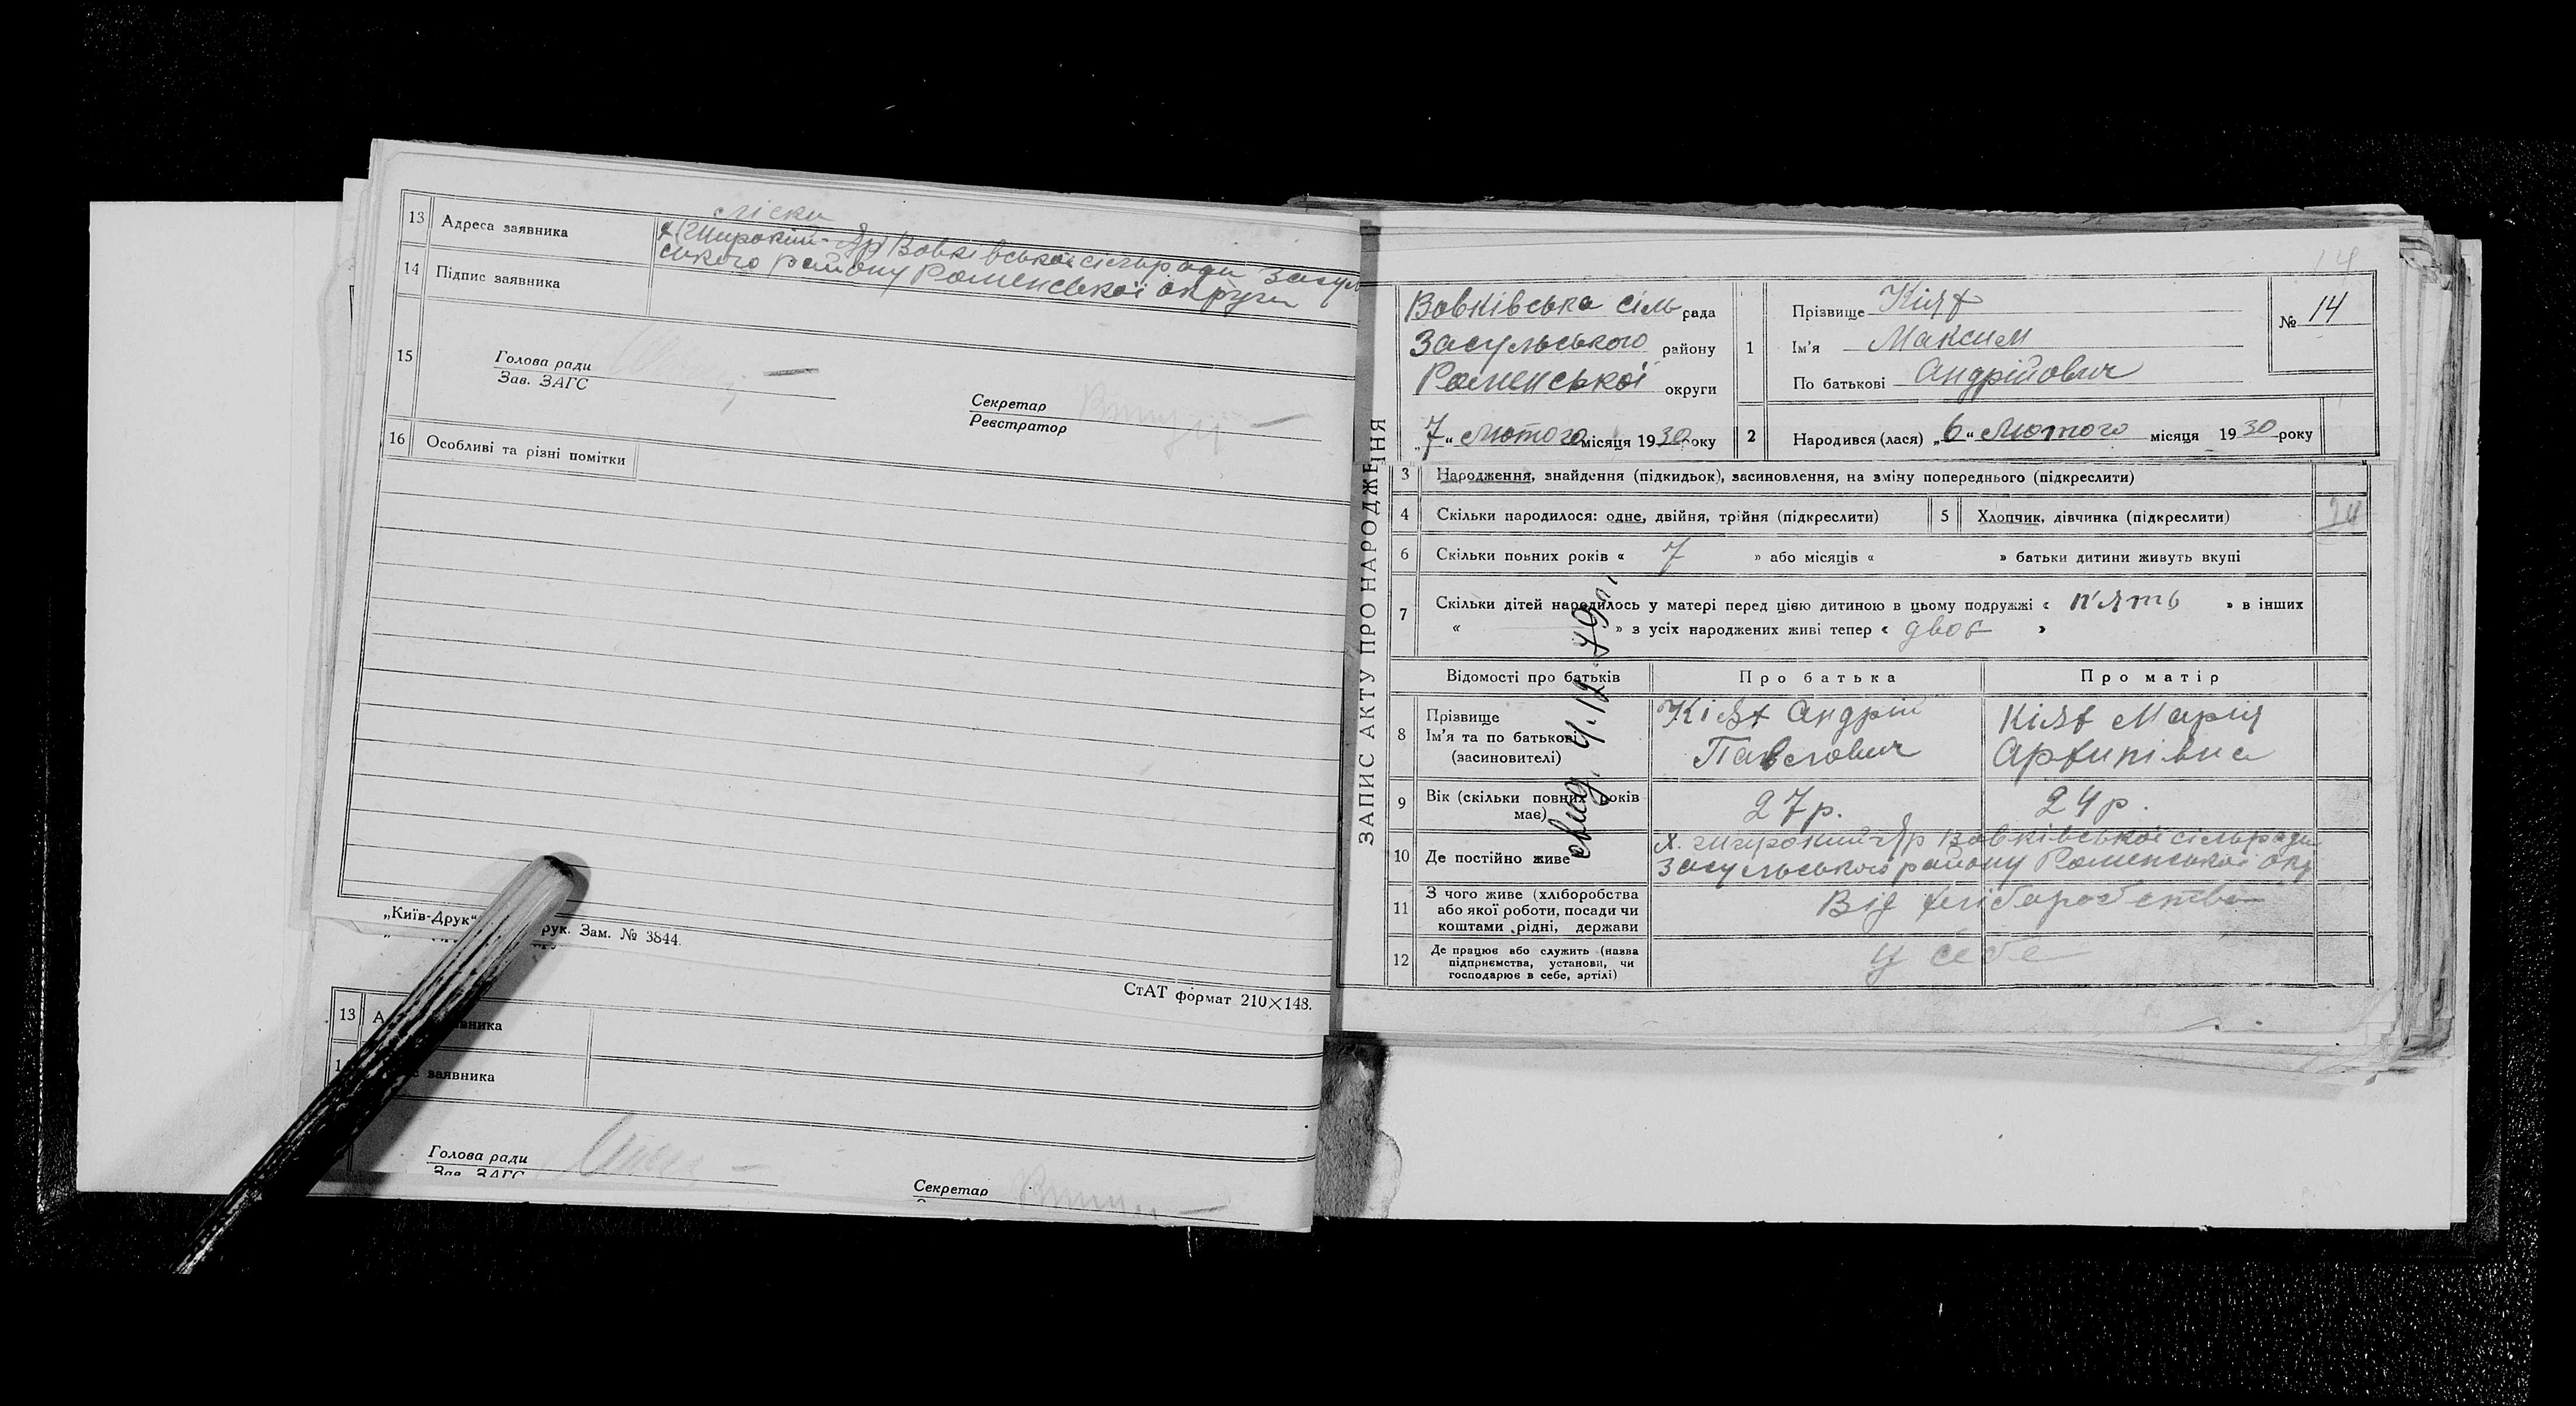 13 Адреса заявника
ліски
х (Широкий-Яр) Вовківської сільради Засуль
ського району Роменської округи
14 Підпис заявника
15
Голова ради
Зав. ЗАГС
Секретар
Реєстратор
16 Особливі та різні помітки
„Київ-Друк“
рук. Зам. № 3844.
СтАТ формат 210×148.
13 А
вника
1
заявника
Голова ради
Зав. ЗАГС
Секретар
ЗАПИС АКТУ ПРО НАРОДЖЕННЯ
14
Вовківська сіль рада
Засульського району
Роменської округи
„7“ Лютого місяця 1930 року
1 Прізвище Кіях
Ім'я Максим
По батькові Андрійович
№ 14
2 Народився (лася) „6“ Лютого місяця 1930 року
3 Народження, знайдення (підкидьок), засиновлення, на зміну попереднього (підкреслити)
4 Скільки народилося: одне, двійня, трійня (підкреслити) 5 Хлопчик, дівчинка (підкреслити)
6 Скільки повних років « 7 » або місяців « » батьки дитини живуть вкупі
7 Скільки дітей народилось у матері перед цією дитиною в цьому подружжі « п'ять » в інших
« » з усіх народжених живі тепер « двоє »
Відомості про батьків Про батька Про матір
8 Прізвище
Ім'я та по батькові
(засиновителі)
Кіях Андрій
Павлович
Кіях Марія
Архипівна
9 Вік (скільки повних років
має)
27 р. 24 р.
10 Де постійно живе
х. Широкий Яр Вовківської сільради
Засульського району Роменської окр
11 З чого живе (хліборобства
або якої роботи, посади чи
коштами рідні, держави
Від хліборобства
12 Де працює або служить (назва
підприємства, установи, чи
господарює в себе, артілі)
у себе